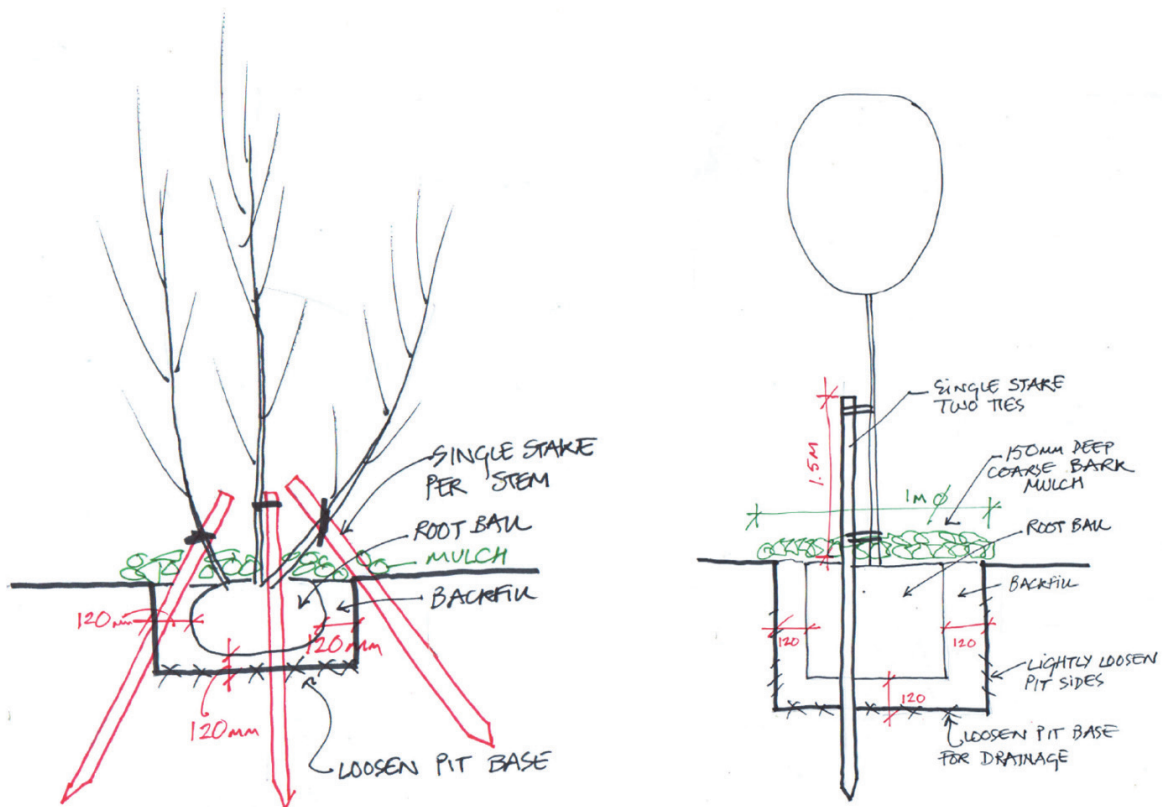 SINGLE STAKE
PER STEM
ROOT BALL
MULCH
BACKFILL
120mm
120mm
120mm
LOOSEN PIT BASE
SINGLE STAKE
TWO TIES
1.5M
150MM DEEP
COARSE BARK
MULCH
1M Ø
ROOT BALL
BACKFILL
120
120
120
LIGHTLY LOOSEN
PIT SIDES
LOOSEN PIT BASE
FOR DRAINAGE